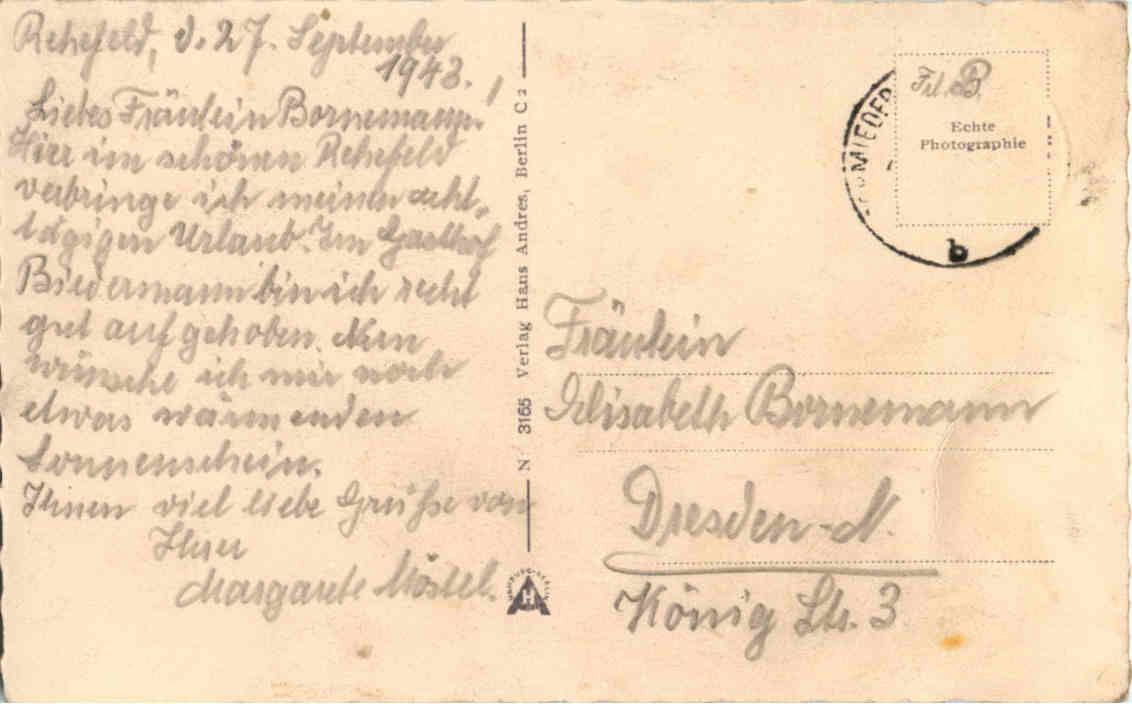 Rehefeld, d. 27. September
1943.
Liebes Fräulein Bornemann!
Hier im schönen Rehefeld
verbringe ich meinen acht-
tägigen Urlaub. Im Gasthof
Biedermann bin ich recht
gut aufgehoben. Nun
wünsche ich mir noch
etwas wärmenden
Sonnenschein.
Ihnen viel liebe Grüße von
Ihrer
Margarete
N 3165 Verlag Hans Andres, Berlin C 2
H
Frl. B.
Echte
Photographie
MIEDEB
b
Fräulein
Elisabeth Bornemann
Dresden-N.
König Str. 3